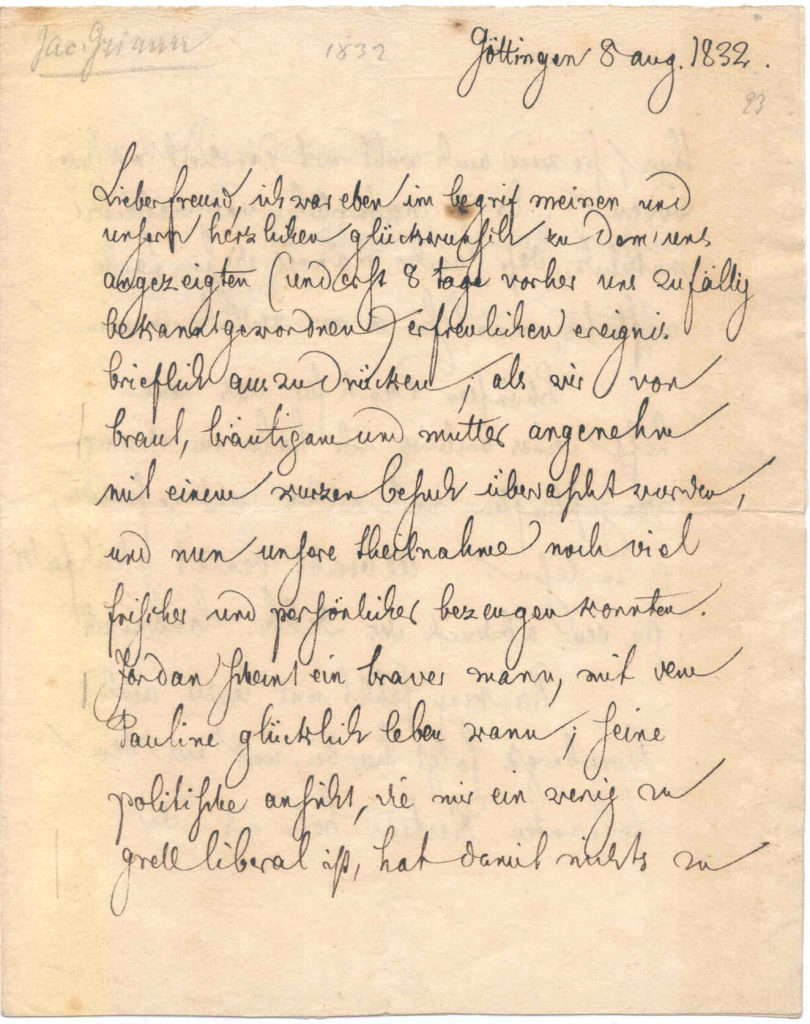 Jac. Grimm
1832
Göttingen 8 aug. 1832.
23
Lieber freund, ich war eben im begrif meinen und
unsern herzlichen glückwunsch zu dem uns
angezeigten (und erst 8 tage vorher uns zufällig
bekanntgewordnen) erfreulichen ereignis
brieflich auszudrücken, als wir von
braut, bräutigam und mutter angenehm
mit einem kurzen besuch überrascht wurden,
und nun unsere theilnahme noch viel
frischer und persönlicher bezeugen konnten.
Jordan scheint ein braver mann, mit dem
Pauline glücklich leben kann; seine
politische ansicht, die mir ein wenig zu
grell liberal ist, hat damit nichts zu